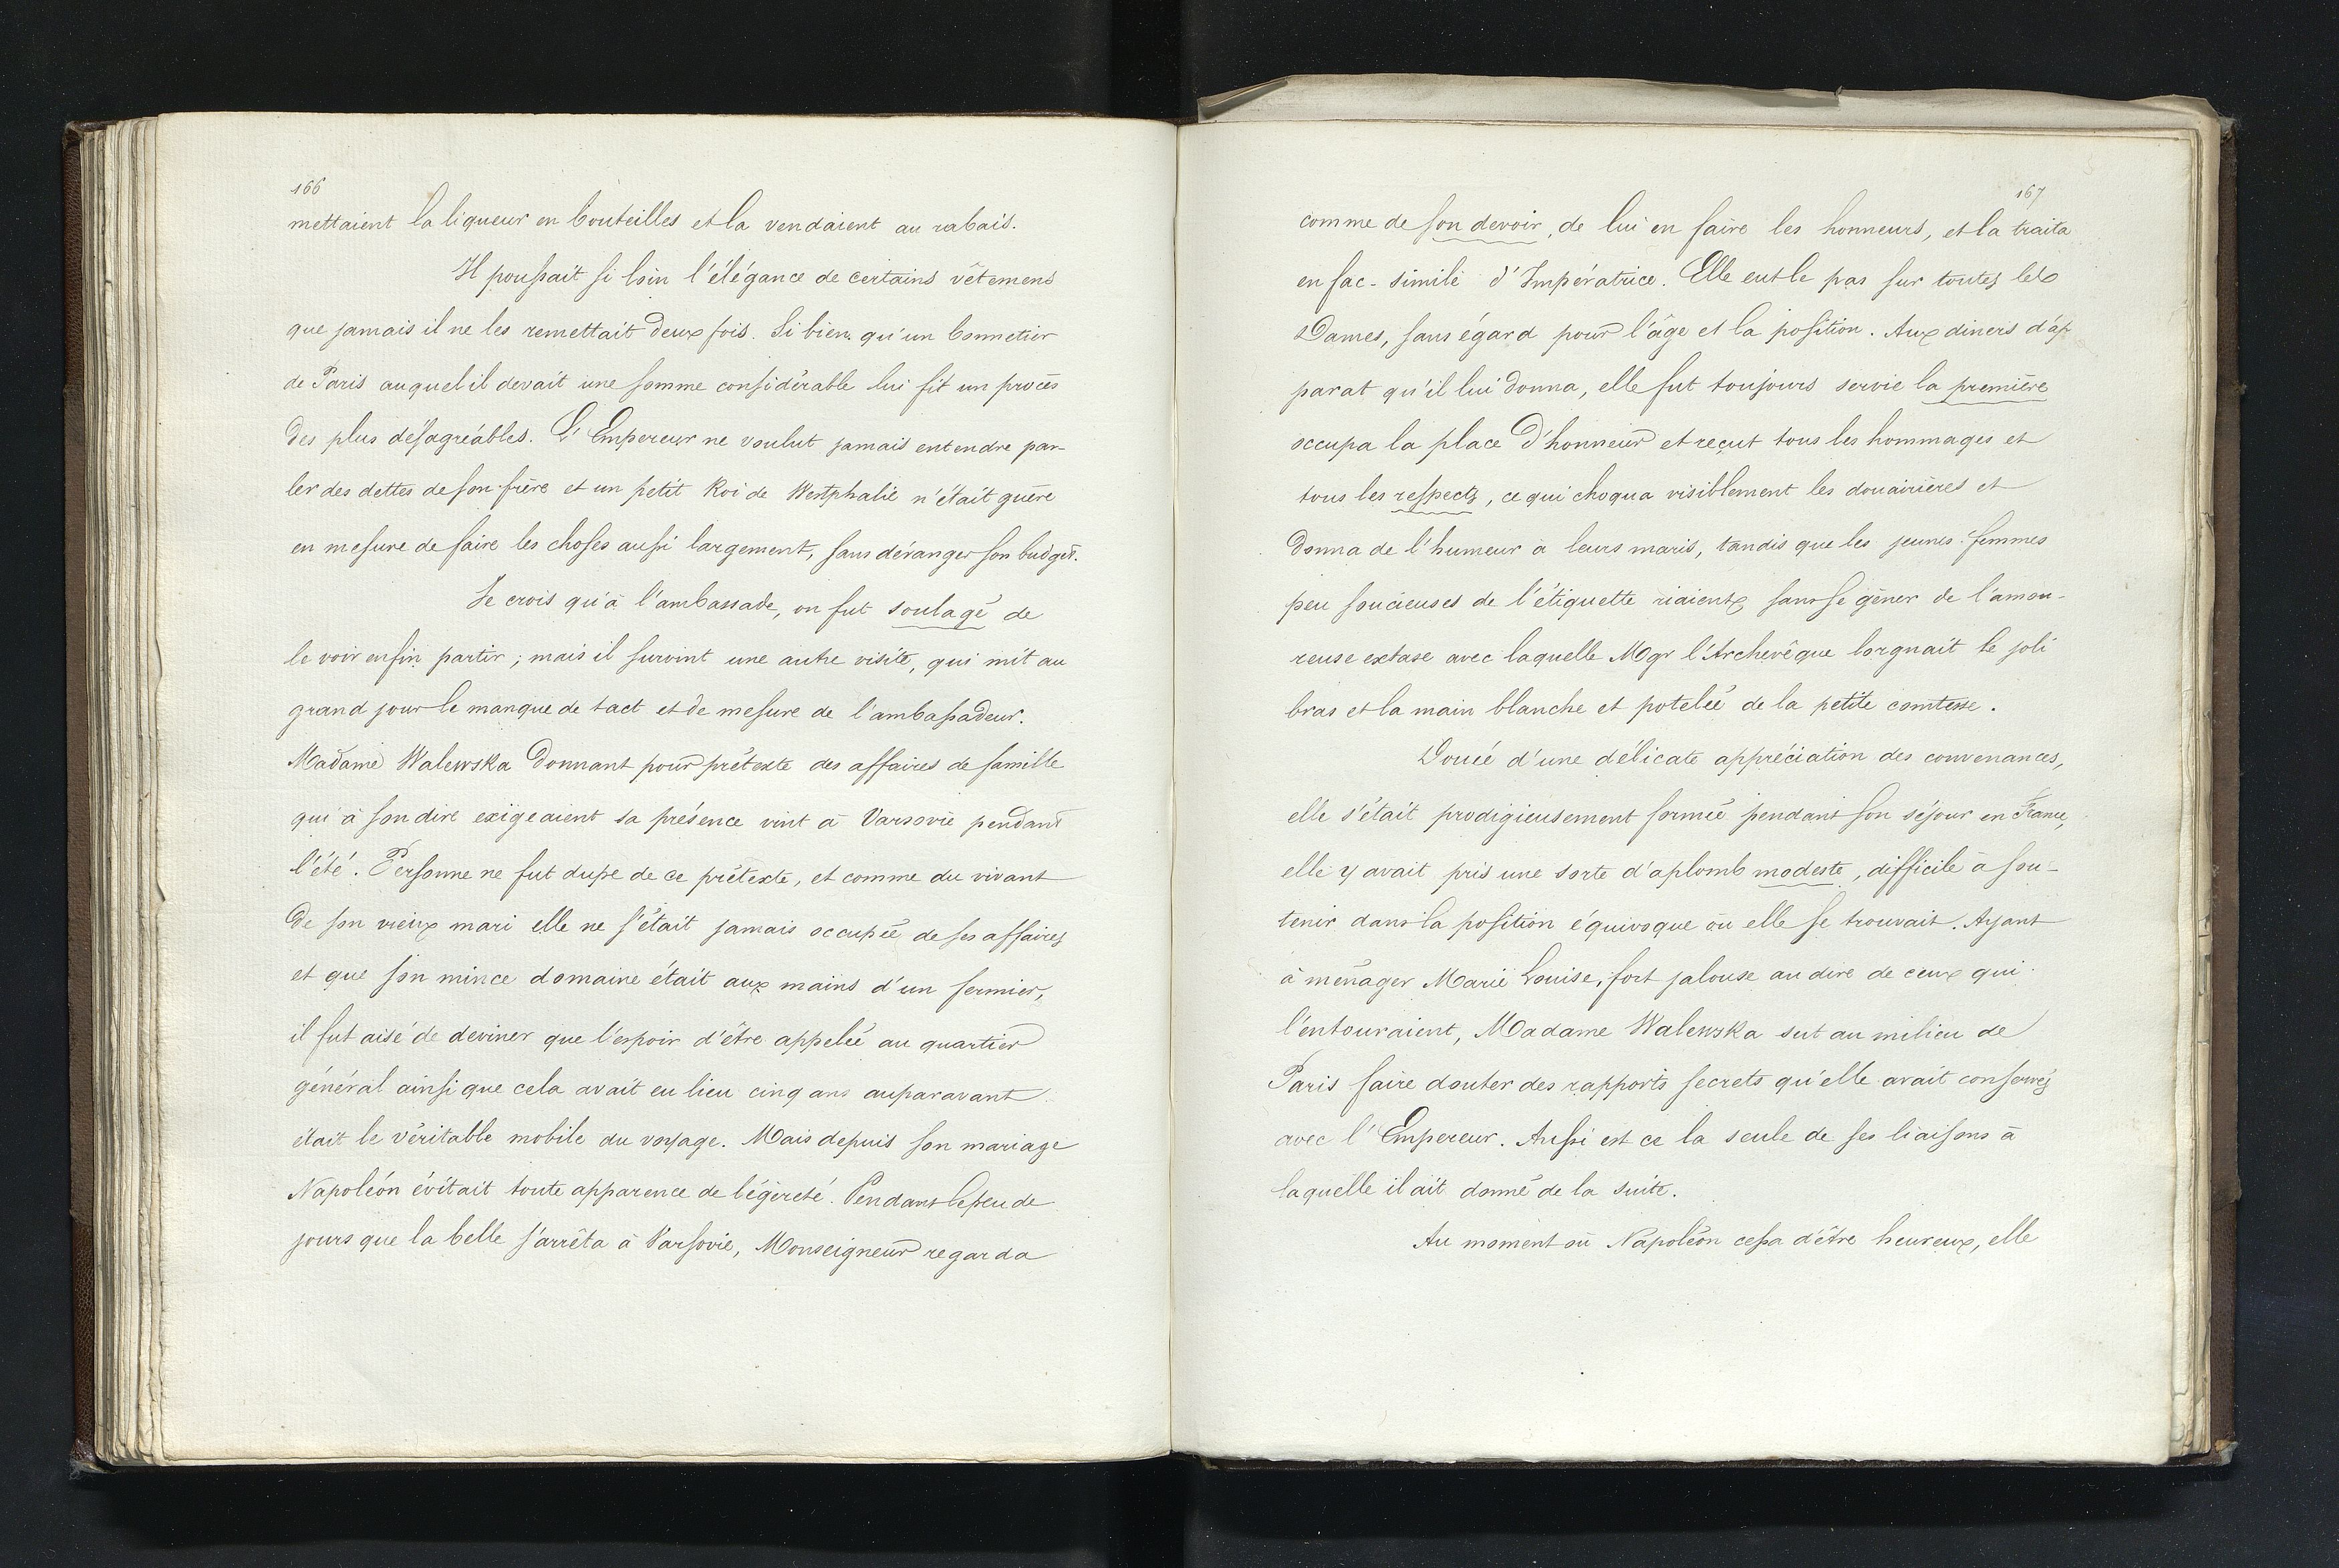 166
mettaient la liqueur en bouteilles et la vendaient au rabais.
Il poussait si loin l'élégance de certains vêtemens
que jamais il ne les remettait deux fois. Si bien qu'un bonnetier
de Paris auquel il devait une somme considérable lui fit un procès
des plus désagréables. L'Empereur ne voulut jamais entendre par-
ler des dettes de son frère et un petit Roi de Westphalie n'était guère
en mesure de faire les choses aussi largement, sans déranger son budget.
Je crois qu'à l'ambassade, on fut soulagé de
le voir enfin partir ; mais il survint une autre visite, qui mit au
grand jour le manque de tact et de mesure de l'ambassadeur.
Madame Walewska donnant pour prétexte des affaires de famille
qui à son dire exigeaient sa présence vint à Varsovie pendant
l'été. Personne ne fut dupe de ce prétexte, et comme du vivant
de son vieux mari elle ne s'était jamais occupée de ses affaires
et que son mince domaine était aux mains d'un fermier,
il fut aisé de deviner que l'espoir d'être appelée au quartier
général ainsi que cela avait eu lieu cinq ans auparavant
était le véritable mobile du voyage. Mais depuis son mariage
Napoléon évitait toute apparence de légèreté. Pendant le peu de
jours que la belle s'arrêta à Varsovie, Monseigneur regarda
167
comme de son devoir, de lui en faire les honneurs, et la traita
en fac-similé d'Impératrice. Elle eut le pas sur toutes les
Dames, sans égard pour l'âge et la position. Aux diners d'ap
parat qu'il lui donna, elle fut toujours servie la première
occupa la place d'honneur et reçut tous les hommages et
tous les respects, ce qui choqua visiblement les douairières et
donna de l'humeur à leurs maris, tandis que les jeunes femmes
peu soucieuses de l'étiquette riaient sans se gêner de l'amou-
reuse extase avec laquelle Mgr l'Archevêque lorgnait le joli
bras et la main blanche et potelée de la petite comtesse.
Douée d'une délicate appréciation des convenances,
elle s'était prodigieusement formée pendant son séjour en France,
elle y avait pris une sorte d'aplomb modeste, difficile à sou-
tenir dans la position équivoque où elle se trouvait. Ayant
à ménager Marie Louise, fort jalouse au dire de ceux qui
l'entouraient, Madame Walewska sut au milieu de
Paris faire douter des rapports secrets qu'elle avait conservés
avec l'Empereur. Aussi est ce la seule de ses liaisons à
laquelle il ait donné de la suite.
Au moment où Napoléon cessa d'être heureux, elle